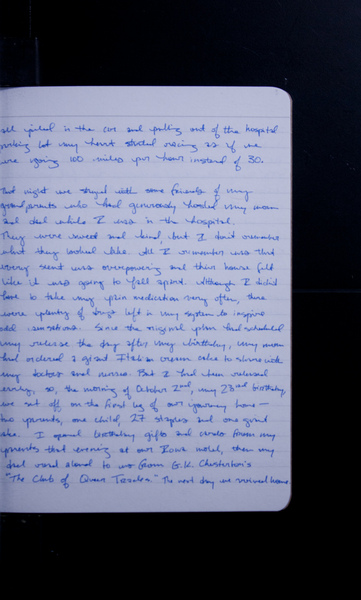 all piled in the car and pulling out of the hospital
parking lot my heart started racing as if we
were going 100 miles per hour instead of 30.
That night we stayed with some friends of my
grandparents who had generously hosted my mom
and dad while I was in the hospital.
They were sweet and kind, but I don't remember
what they looked like. All I remember was that
every scent was overpowering and their house felt
like it was going to fall apart. Although I didn't
have to take my pain medication very often, there
were plenty of drugs left in my system to inspire
odd sensations. Since the original plan had scheduled
my release the day after my birthday, my mom
had ordered a giant Italian cream cake to share with
my doctors and nurses. But I had been released
early, so, the morning of October 2nd, my 23rd birthday,
we set off on the first leg of our journey home—
two parents, one child, 27 staples and one giant
cake. I opened birthday gifts and cards from my
parents that evening at our motel, then my
dad read aloud to us from G.K. Chesterton's
"The Club of Queer Trades." The next day we arrived home